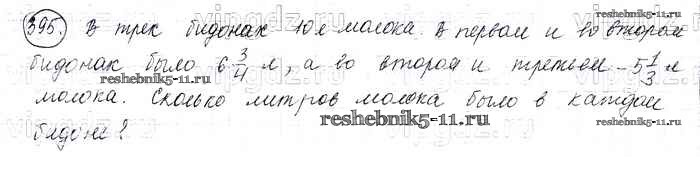 395. В трех бидонах 10 л молока. В первом и во втором
бидонах было 6 3/4 л, а во втором и третьем – 5 1/3 л
молока. Сколько литров молока было в каждом
бидоне?
reshebnik5-11.ru
reshebnik5-11.ru
reshebnik5-11.ru
reshebnik5-11.ru